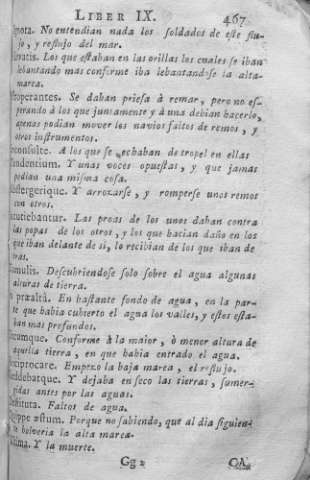 LIBER IX. 467
Ignota. No entendian nada los soldados de este flu-
jo, y reflujo del mar.
Elevatis. Los que estaban en las orillas los cuales se iban
lebantando mas conforme iba lebantandose la alta-
marea.
Properantes. Se daban priesa à remar, pero no es-
perando à los que juntamente y à una debian hacerlo,
apenas podian mover los navios faltos de remos, y
otros instrumentos.
Inconsulte. A los que se echaban de tropel en ellas
Tendentium. Y unas voces opuestas, y que jamas
pedian una misma cosa.
Detergerique. Y arrozarse, y romperse unos remos
con otros.
Arietabantur. Las proas de los unos daban contra
las popas de los otros, y los que hacian daño en los
que iban delante de si, lo recibian de los que iban de-
tras.
Tumulis. Descubriendose solo sobre el agua algunas
alturas de tierra.
In præaltà. En bastante fondo de agua, en la par-
te que habia cubierto el agua los valles, y estos esta-
ban mas profundos.
Utcumque. Conforme à la maior, ò menor altura de
aquella tierra, en que habia entrado el agua.
Reciprocare. Empezo la baja marea, el reflujo.
Reddebatque. Y dejaba en seco las tierras, sumer-
gidas antes por las aguas.
Destituta. Faltos de agua.
Quippe æstum. Porque no sabiendo, que al dia siguien-
te bolveria la alta marea.
Ultima. Y la muerte.
Gg 2